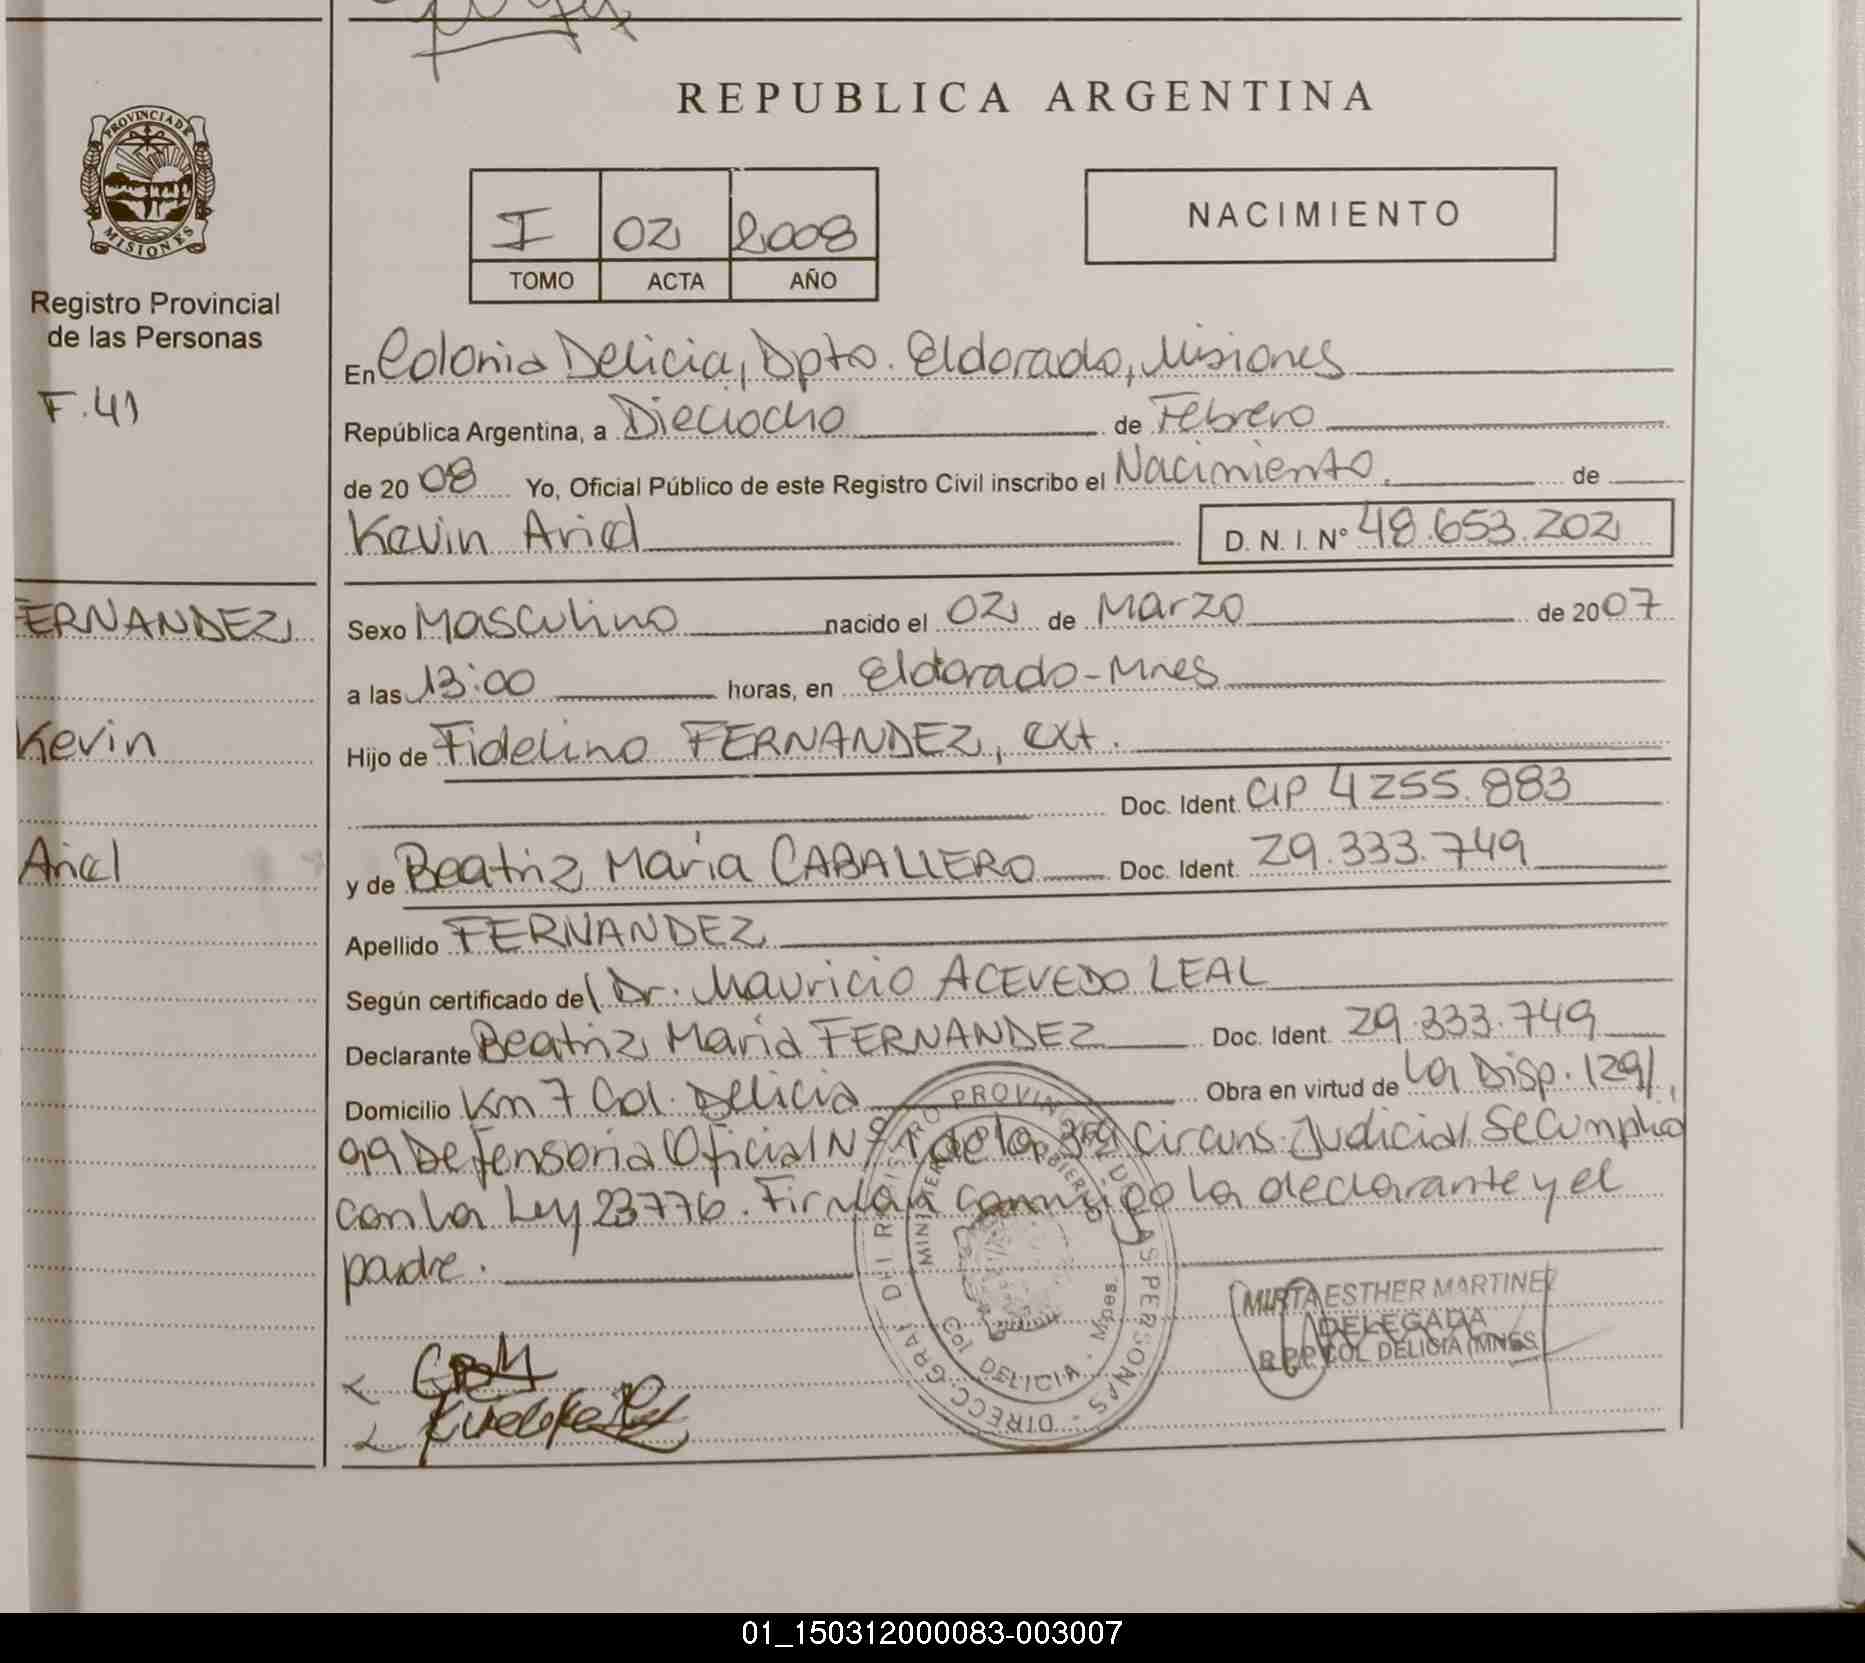 REPUBLICA ARGENTINA
PROVINCIA DE
MISIONES
Registro Provincial
de las Personas
F.41
I 02 2008
TOMO ACTA AÑO
NACIMIENTO
En Colonia Delicia, Dpto. Eldorado, Misiones
República Argentina, a Dieciocho de Febrero
de 20 08 Yo, Oficial Público de este Registro Civil inscribo el Nacimiento de
Kevin Ariel D. N. I. N° 48.653.202
FERNANDEZ
Kevin
Ariel
Sexo Masculino nacido el 02 de Marzo de 2007
a las 13:00 horas, en Eldorado-Mnes
Hijo de Fidelino FERNANDEZ, ext.
Doc. Ident. CIP 4255.883
y de Beatriz María CABALLERO Doc. Ident. 29.333.749
Apellido FERNANDEZ
Según certificado del Dr. Mauricio ACEVEDO LEAL
Declarante Beatriz María FERNANDEZ Doc. Ident. 29.333.749
Domicilio Km 7 Col. Delicia Obra en virtud de la Disp. 129/
99 Defensoria Oficial Nº 1 de la 3ra Circuns. Judicial Se Cumplio
con la Ley 23776. Firman conmigo la declarante y el
padre.
MIRTA ESTHER MARTINEZ
DELEGADA
R.P.P COL DELICIA (MNES
Col DELICIA - Mnes.
01_150312000083-003007